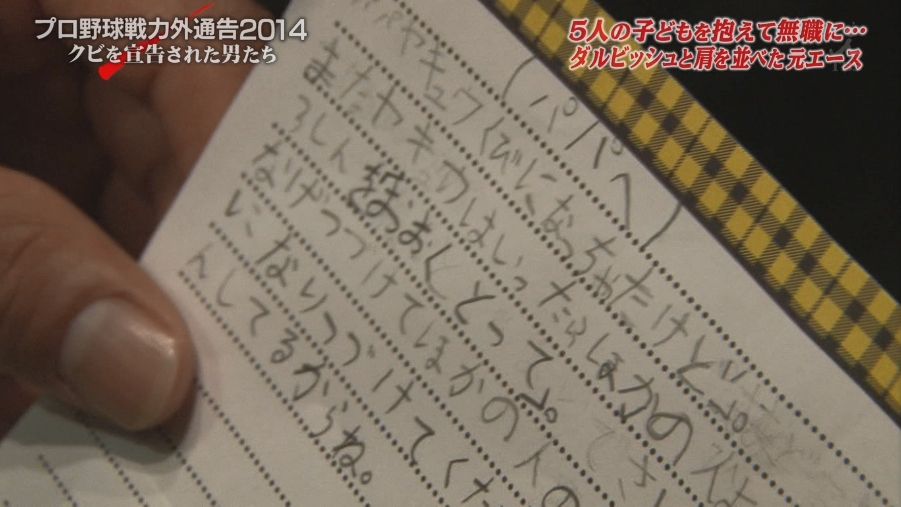 プロ野球戦力外通告2014
クビを宣告された男たち
5人の子どもを抱えて無職に…
ダルビッシュと肩を並べた元エース
(パパへ)
ヤキュウくびになっちゃたけど
またヤキュウはいったらほかの
ろしん とって。
なげつづけてほかの人の
になりつづけてくだ
んしてるからね。